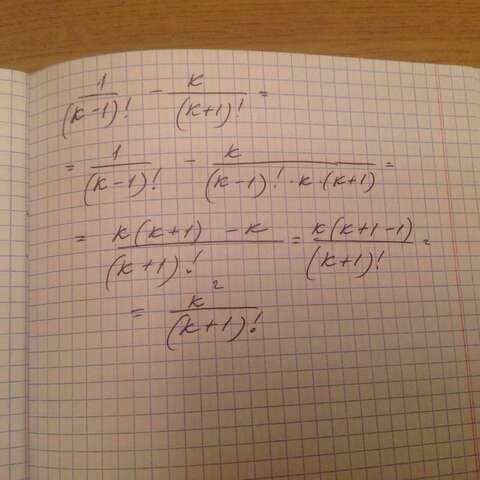 1/(k-1)! - k/(k+1)! =
= 1/(k-1)! - k/((k-1)! · k · (k+1)) =
= (k(k+1) - k)/(k+1)! = k(k+1-1)/(k+1)! =
= k²/(k+1)!